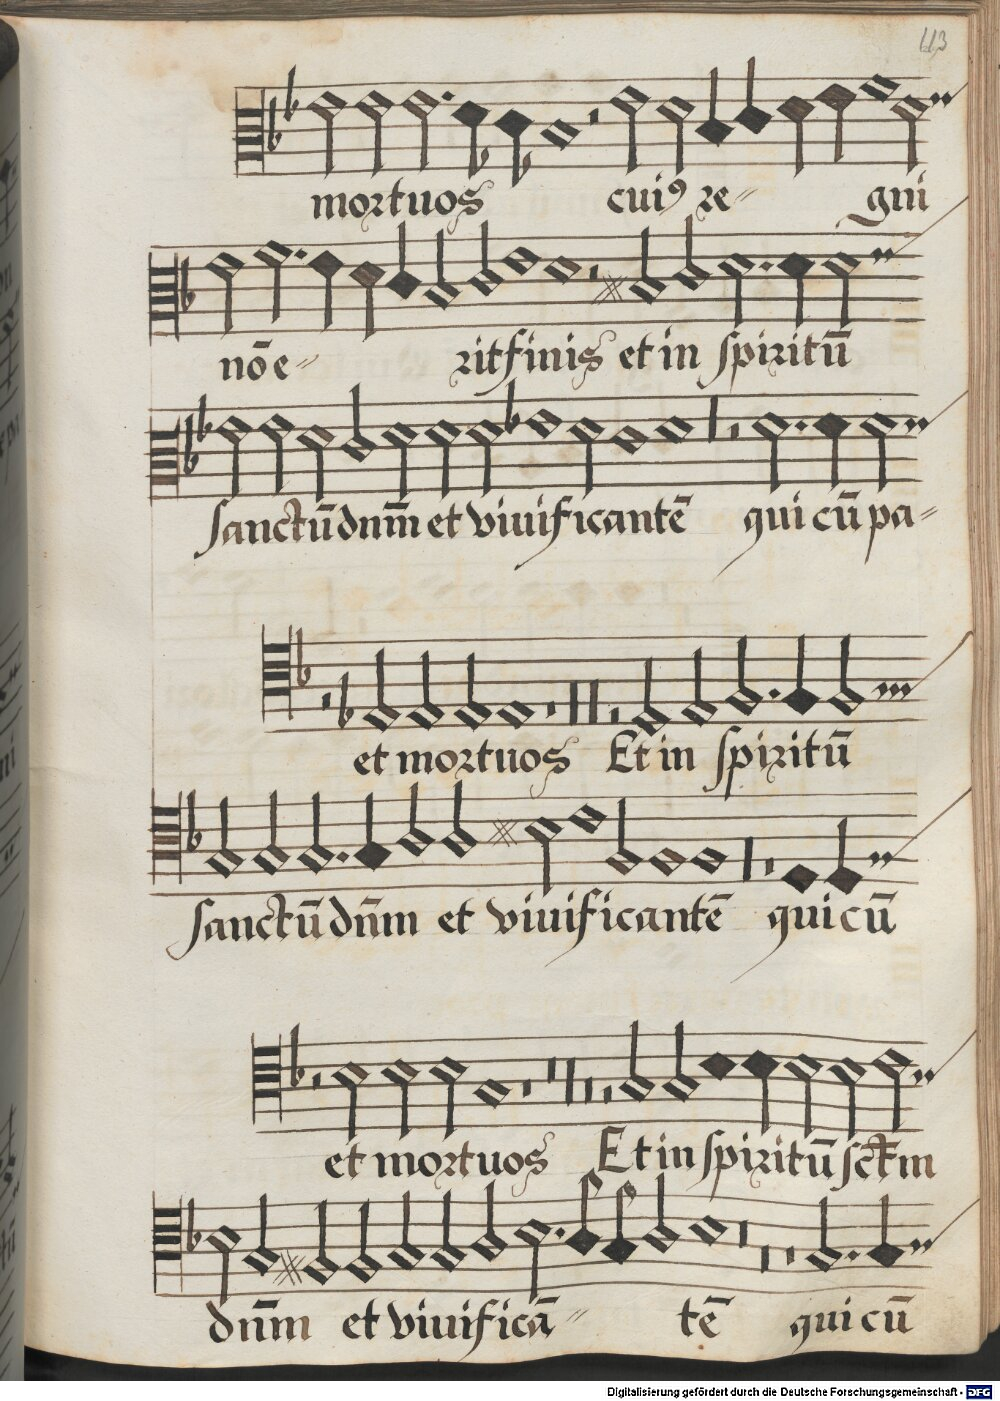 113
mortuos cuiꝰ re- gni
nō e- rit finis et in spiritū
sanctū dnm̄ et viuificantē qui cū pa-
et mortuos Et in spiritū
sanctū dn̄m et viuificantē qui cū
et mortuos Et in spiritū sct̄m
dn̄m et viuificā- tē qui cū
Digitalisierung gefördert durch die Deutsche Forschungsgemeinschaft - DFG